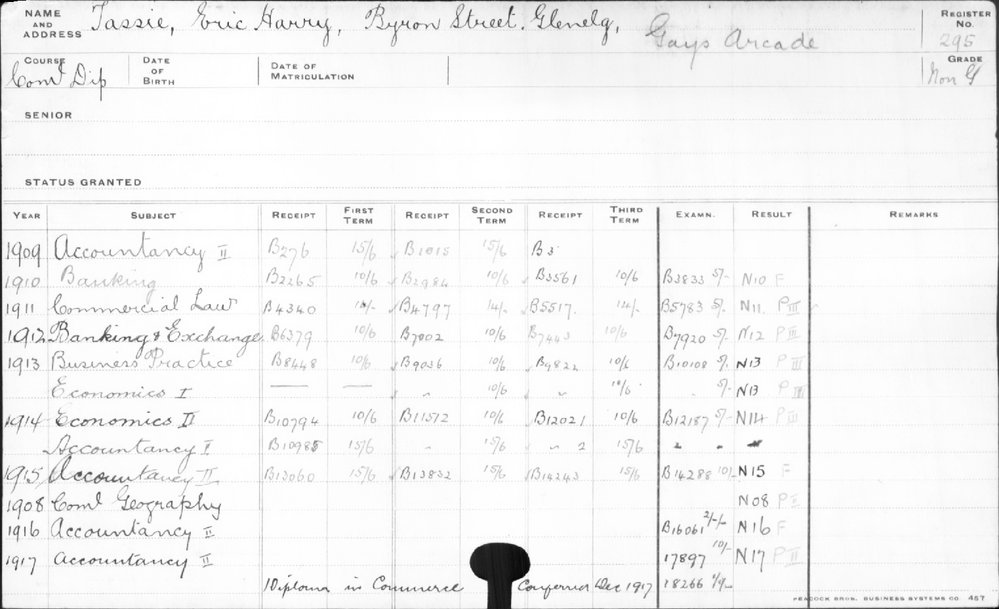 NAME AND ADDRESS Tassie, Eric Harry, Byron Street. Glenelg, Gays Arcade REGISTER No. 295
COURSE Coml Dip DATE OF BIRTH DATE OF MATRICULATION GRADE Non G
SENIOR
STATUS GRANTED
YEAR SUBJECT RECEIPT FIRST TERM RECEIPT SECOND TERM RECEIPT THIRD TERM EXAMN. RESULT REMARKS
1909 Accountancy II B276 15/6 B1015 15/6 B3
1910 Banking B2265 10/6 B2984 10/6 B3561 10/6 B3833 5/- N10 F
1911 Commercial Law B4340 14/- B4797 14/- B5517. 14/- B5783 5/- N11. P III
1912 Banking & Exchange B6379 10/6 B7002 10/6 B7443 10/6 B7920 5/- N12 P III
1913 Business Practice B8448 10/6 B9036 10/6 B9822 10/6 B10108 5/- N13 P III
Economics I — — " 10/6 " 10/6 " 5/- N13 P III
1914 Economics II B10794 10/6 B11572 10/6 B12021 10/6 B12187 5/- N14 P III
Accountancy I B10985 15/6 " 15/6 " 15/6
1915 Accountancy II B13060 15/6 B13832 15/6 B14243 15/6 B14288 10/- N15 F
1908 Coml Geography N08 P II
1916 Accountancy II B16061 N16 F
1917 Accountancy II 17897 10/- N17 P II
Diploma in Commerce Conferred Dec 1917 18266
PEACOCK BROS. BUSINESS SYSTEMS CO. 457